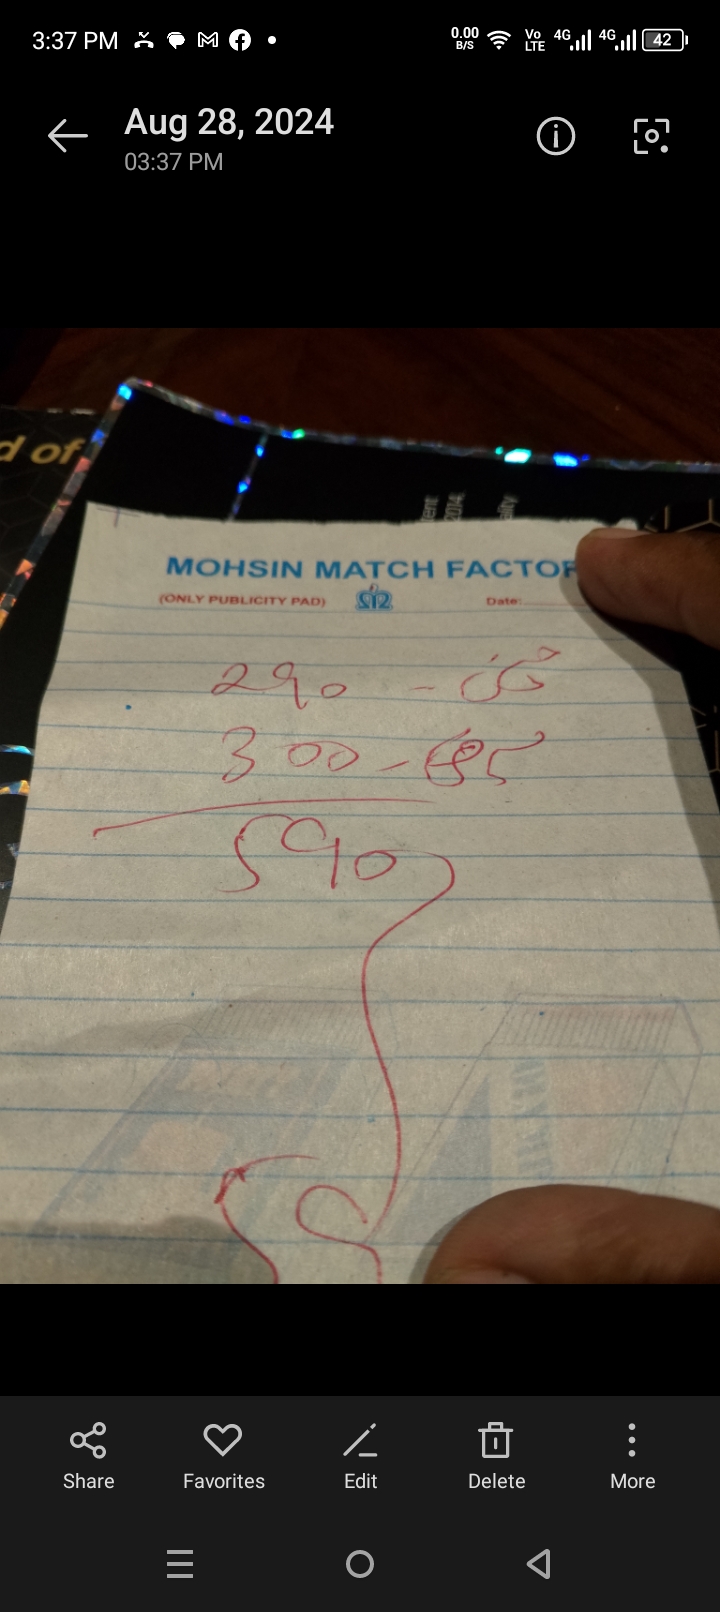 3:37 PM
0.00 B/S
Vo LTE 4G 4G 42
Aug 28, 2024
03:37 PM
d of
MOHSIN MATCH FACTOR
(ONLY PUBLICITY PAD)
Date:
290 -
300 -
590
Share Favorites Edit Delete More